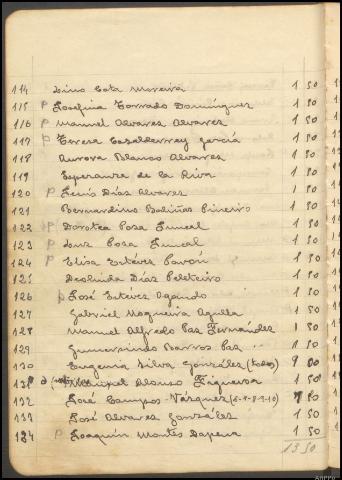 114 Lino Cota Moreira 1 50
115 p Josefina Torrado Domínguez 1 50
116 p Manuel Alvarez Alvarez 1 50
117 p Teresa Casalderrey García 1 50
118 Aurora Blanco Alvarez 1 50
119 Esperanza de la Riva 1 50
120 p Luis Díaz Alvarez 1 50
121 Bernardino Baliñas Pineiro 1 50
122 p Dorotea Poza Juncal 1 50
123 p Luz Poza Juncal 1 50
124 p Elisa Estévez Pavón 1 50
125 Deolinda Díaz Peleteiro 1 50
126 p José Estevez Ogando 1 50
127 Gabriel Mogueira Agulla 1 50
128 Manuel Alfredo Paz Fernandez 1 50
129 Gumersindo Barros Paz 1 50
130 Eugenia Silva González (todos) 9 00
131 Manuel Alonso Figueroa 1 50
132 José Campos Vázquez (6-7-8-9-10) 50
133 José Alvarez González 1 50
134 p Joaquín Montes Dapena 1 50
13 50